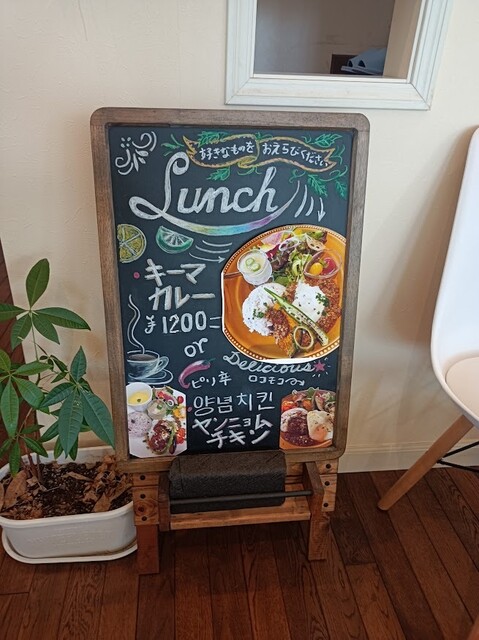 好きなものを おえらびください
Lunch
キーマ
カレー
¥1200=
or
Delicious
ピリ辛
ロコモコorヱ
양념치킨
ヤンニョム
チキン